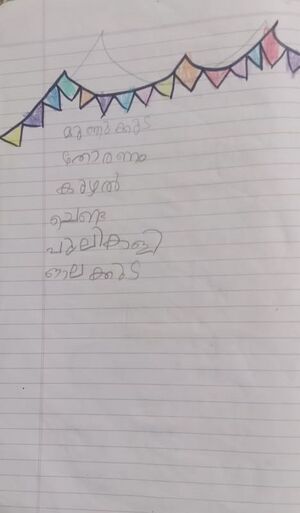 മുത്തുക്കുട
തോരണം
കുഴൽ
ചെണ്ട
പുലികളി
ഓലക്കുട